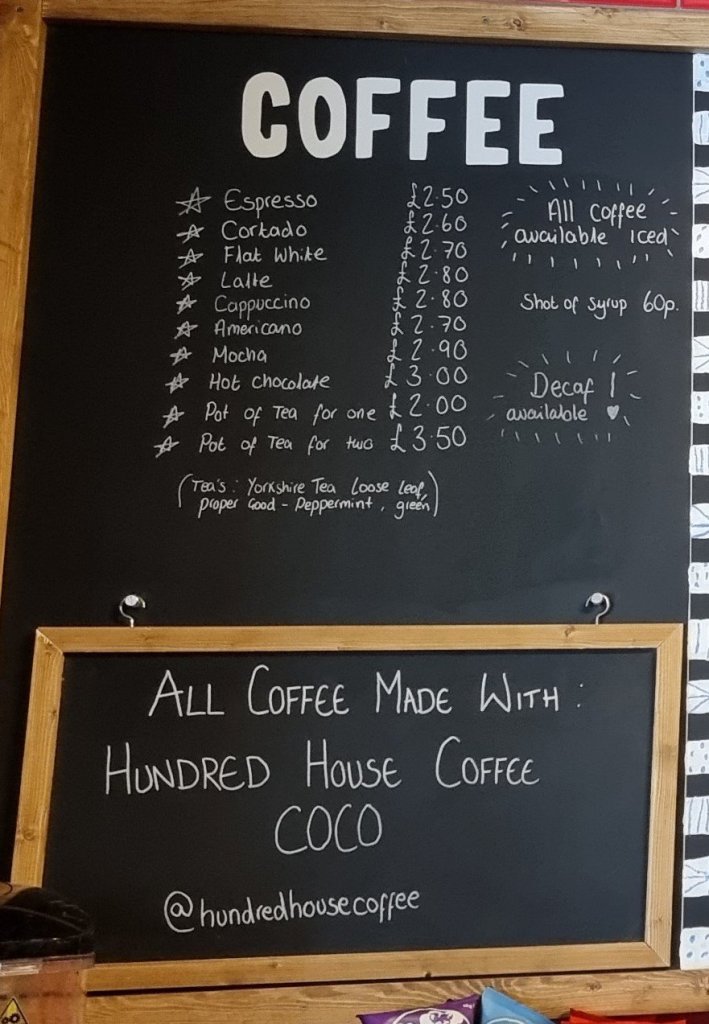 COFFEE
☆ Espresso £2.50
☆ Cortado £2.60
☆ Flat White £2.70
☆ Latte £2.80
☆ Cappuccino £2.80
☆ Americano £2.70
☆ Mocha £2.90
☆ Hot chocolate £3.00
☆ Pot of Tea for one £2.00
☆ Pot of Tea for two £3.50
(Tea's: Yorkshire Tea Loose Leaf,
proper Good - Peppermint, green)
All coffee
available Iced
Shot of syrup 60p.
Decaf !
available ♥
ALL COFFEE MADE WITH:
HUNDRED HOUSE COFFEE
COCO
@hundredhousecoffee